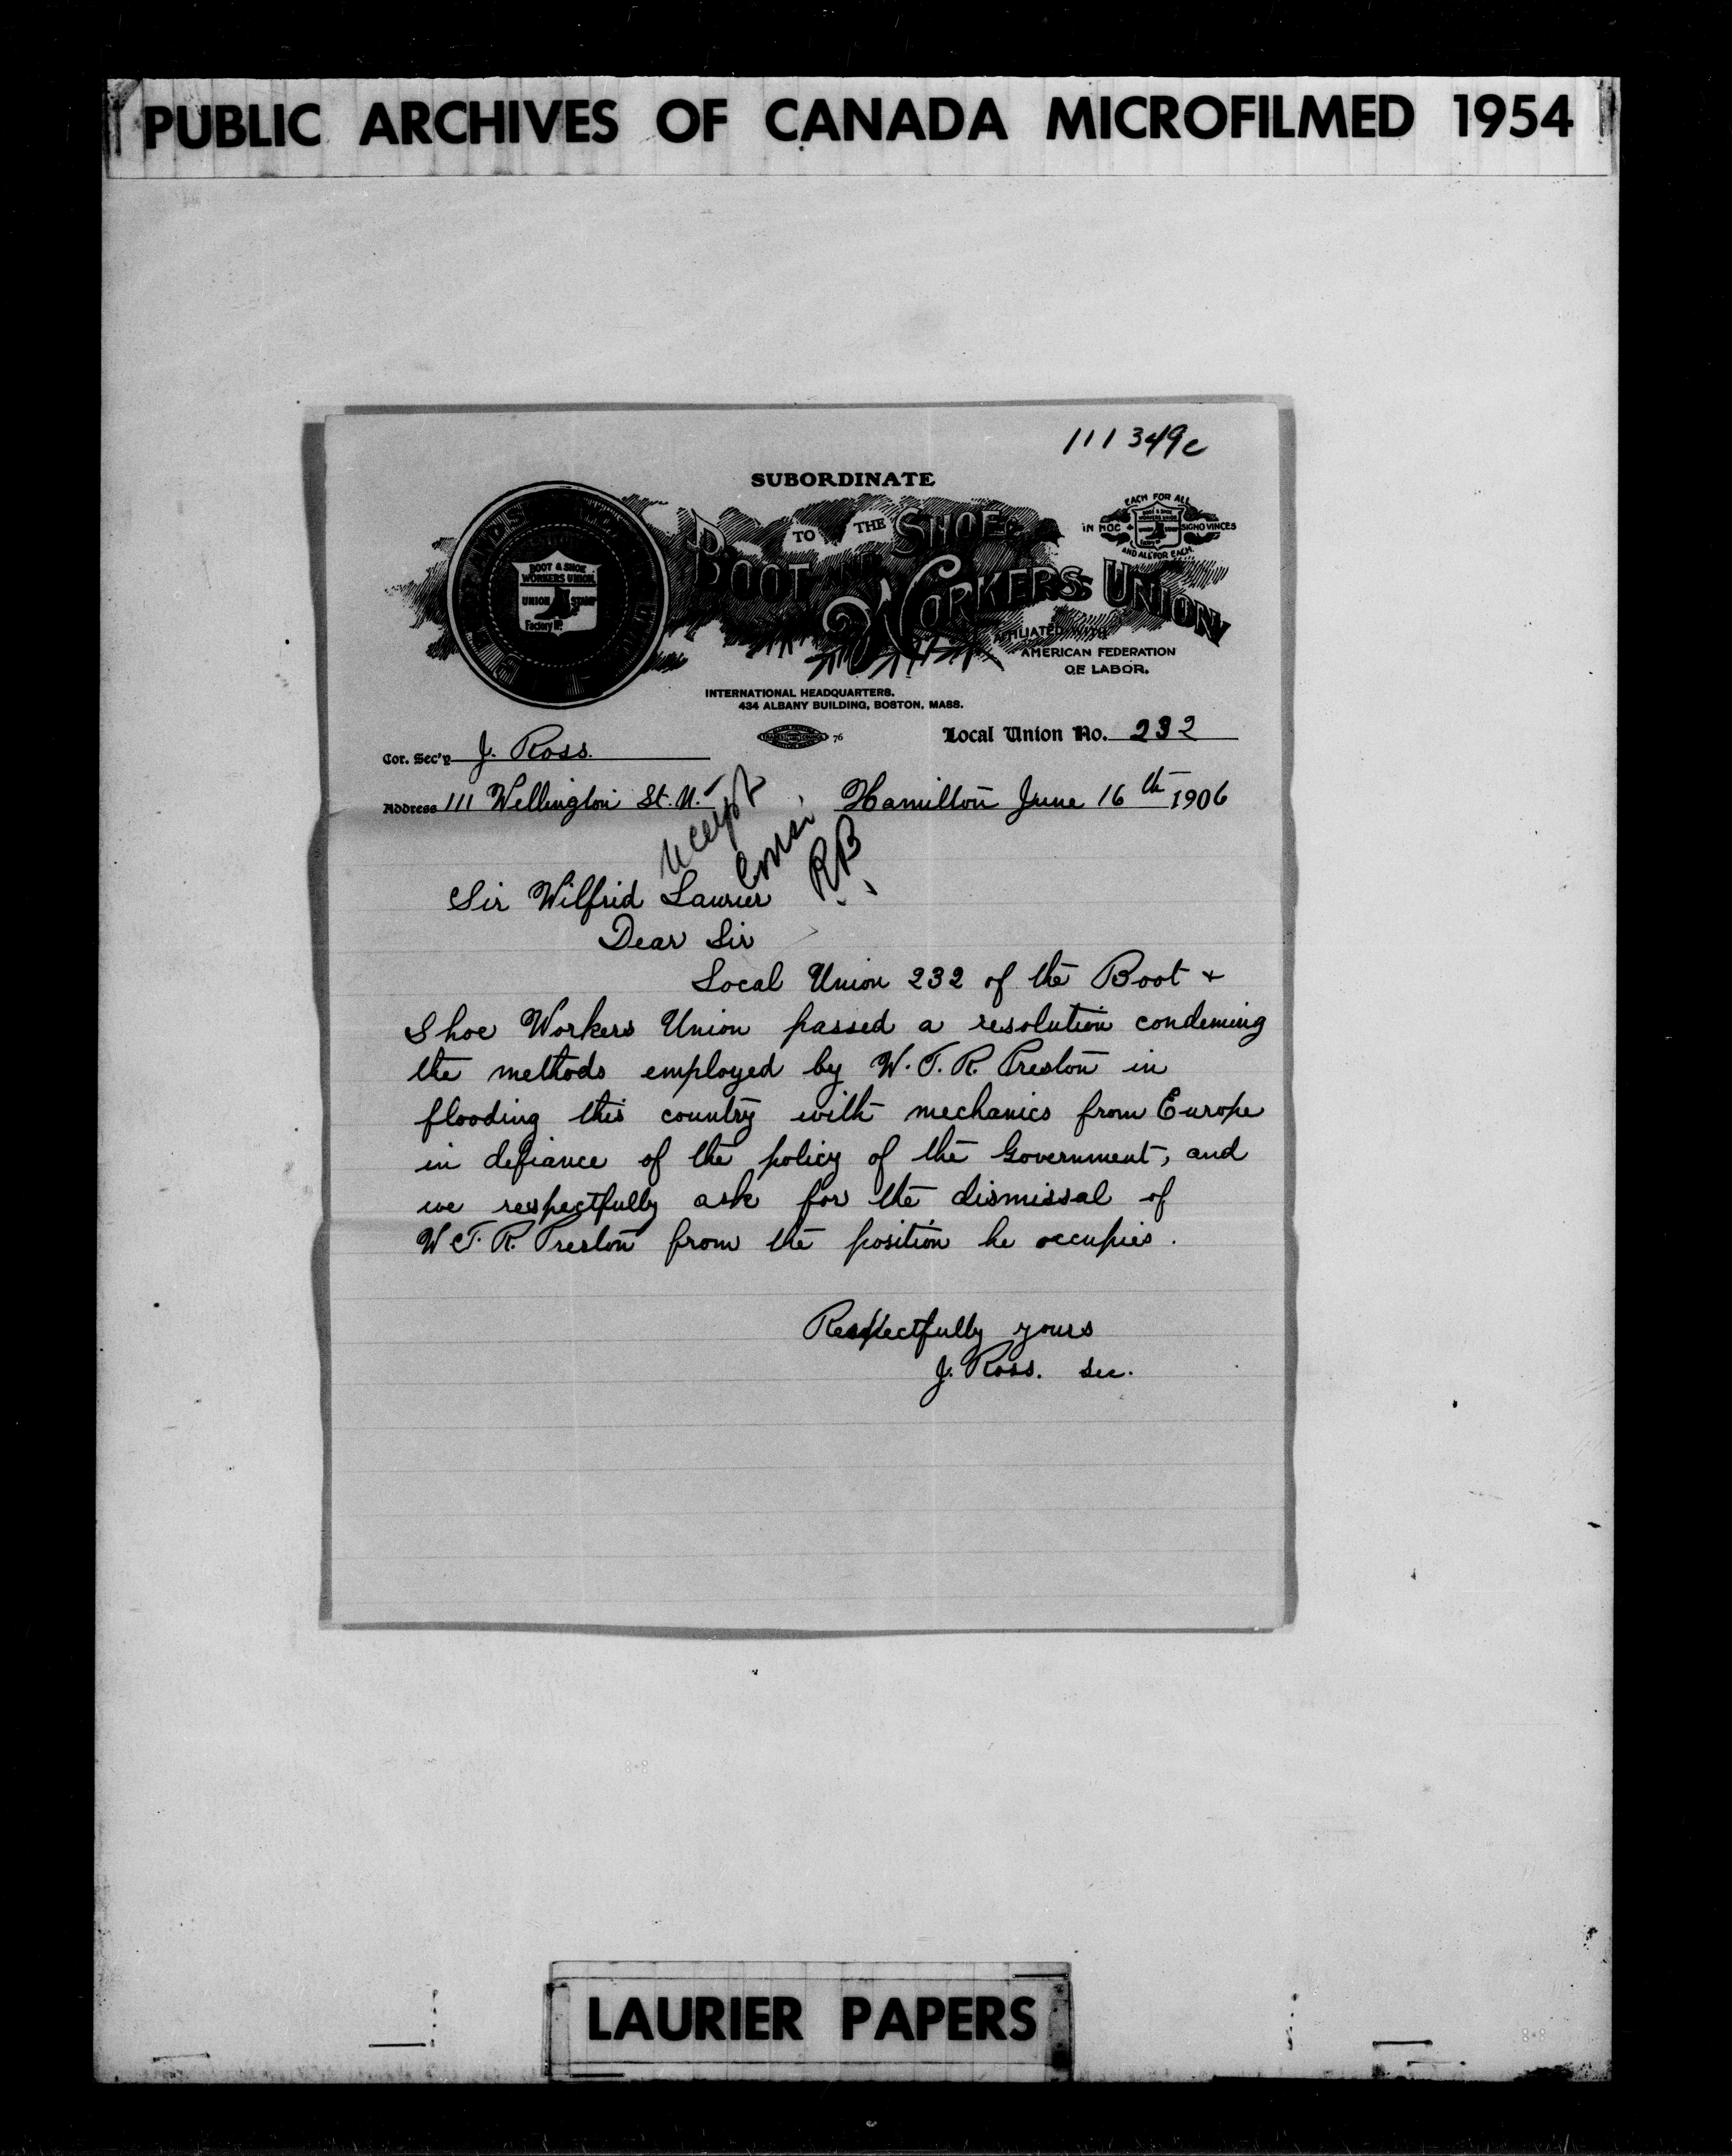 PUBLIC ARCHIVES OF CANADA MICROFILMED 1954
111349c
SUBORDINATE
TO THE
BOOT AND SHOE
WORKERS UNION
EACH FOR ALL
IN HOC SIGNO VINCES
AND ALL FOR EACH
BOOT & SHOE
WORKERS UNION
UNION STAMP
Factory No.
AFFILIATED WITH
AMERICAN FEDERATION
OF LABOR.
INTERNATIONAL HEADQUARTERS.
434 ALBANY BUILDING, BOSTON, MASS.
76
Local Union No. 232
Cor. Sec'y J. Ross.
Address 111 Wellington St. N. Hamilton June 16th 1906
RB
Sir Wilfrid Laurier
Dear Sir
Local Union 232 of the Boot &
Shoe Workers Union passed a resolution condeming
the methods employed by W. T. R. Preston in
flooding this country with mechanics from Europe
in defiance of the policy of the Government, and
we respectfully ask for the dismissal of
W T. R. Preston from the position he occupies.
Respectfully yours
J. Ross. Sec.
LAURIER PAPERS